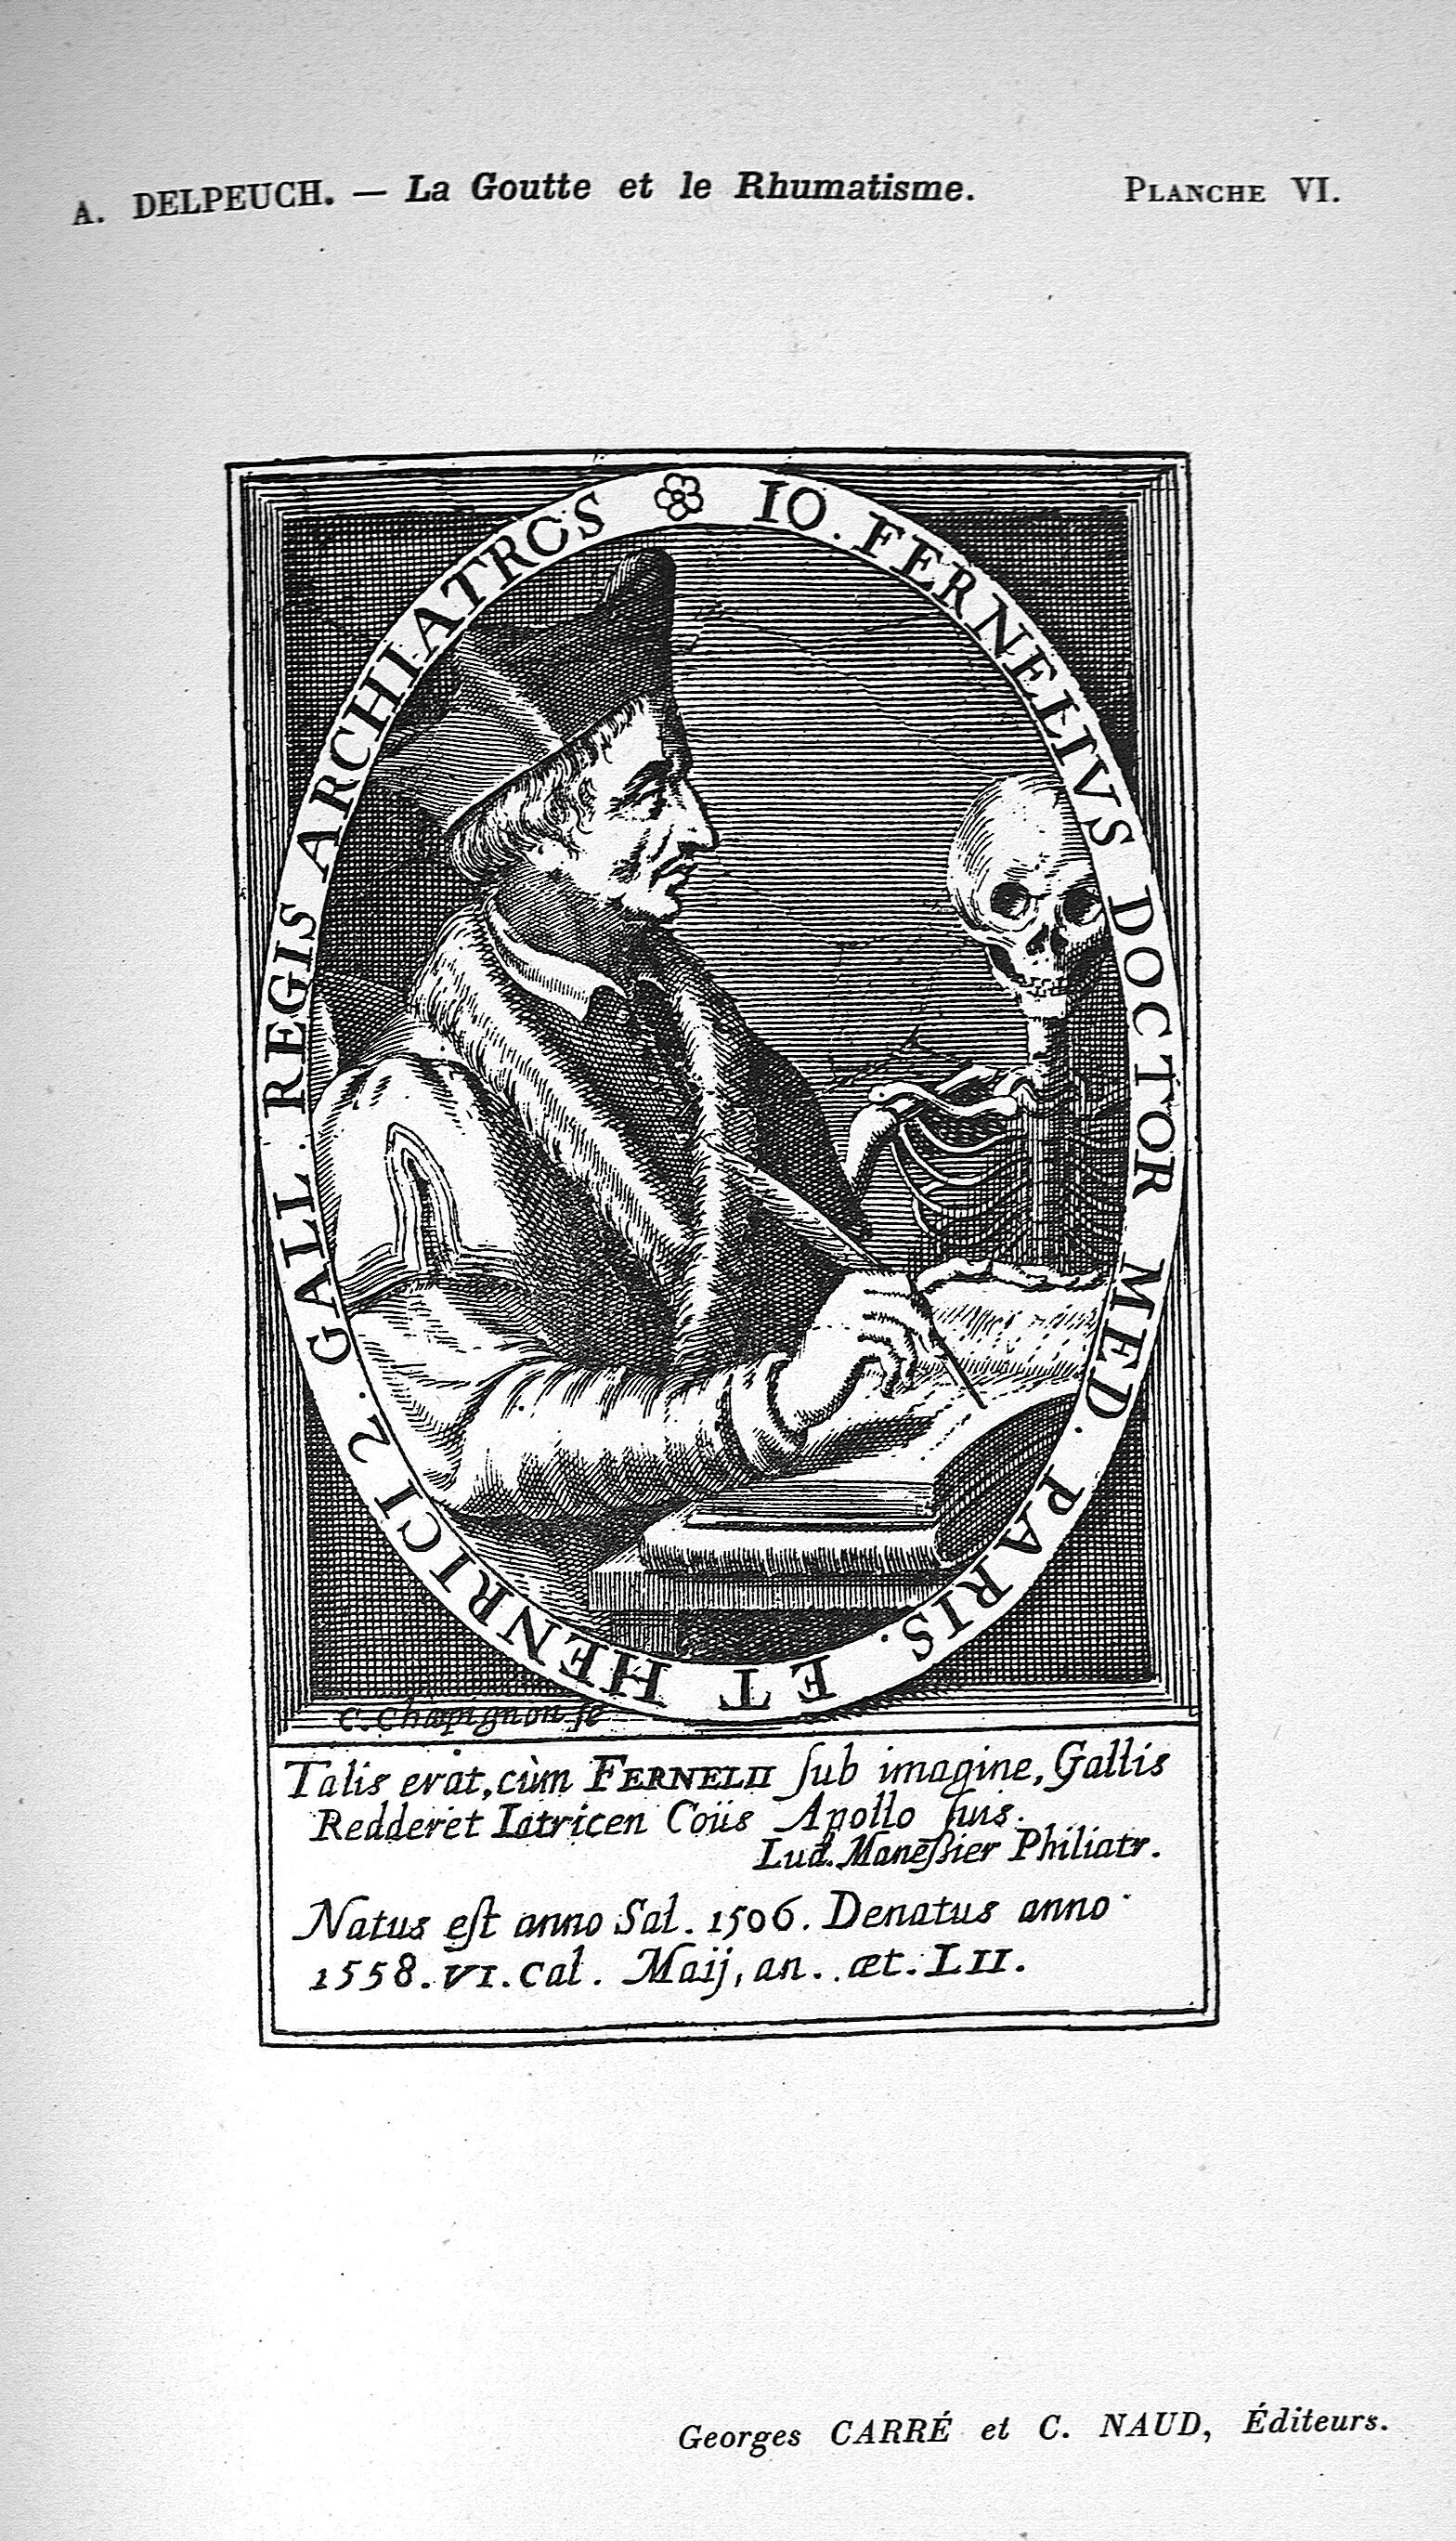 A. DELPEUCH. — La Goutte et le Rhumatisme. PLANCHE VI.
IO. FERNELIVS DOCTOR MED. PARIS. ET HENRICI 2. GALL. REGIS ARCHIATROS
C. Chapignon fe
Talis erat, cùm FERNELII ſub imagine, Gallis
Redderet Iatricen Coüs Apollo ſuis.
Lud. Maneßier Philiatr.
Natus eſt anno Sal. 1506. Denatus anno
1558. VI. Cal. Maij, an. æt. LII.
Georges CARRÉ et C. NAUD, Éditeurs.